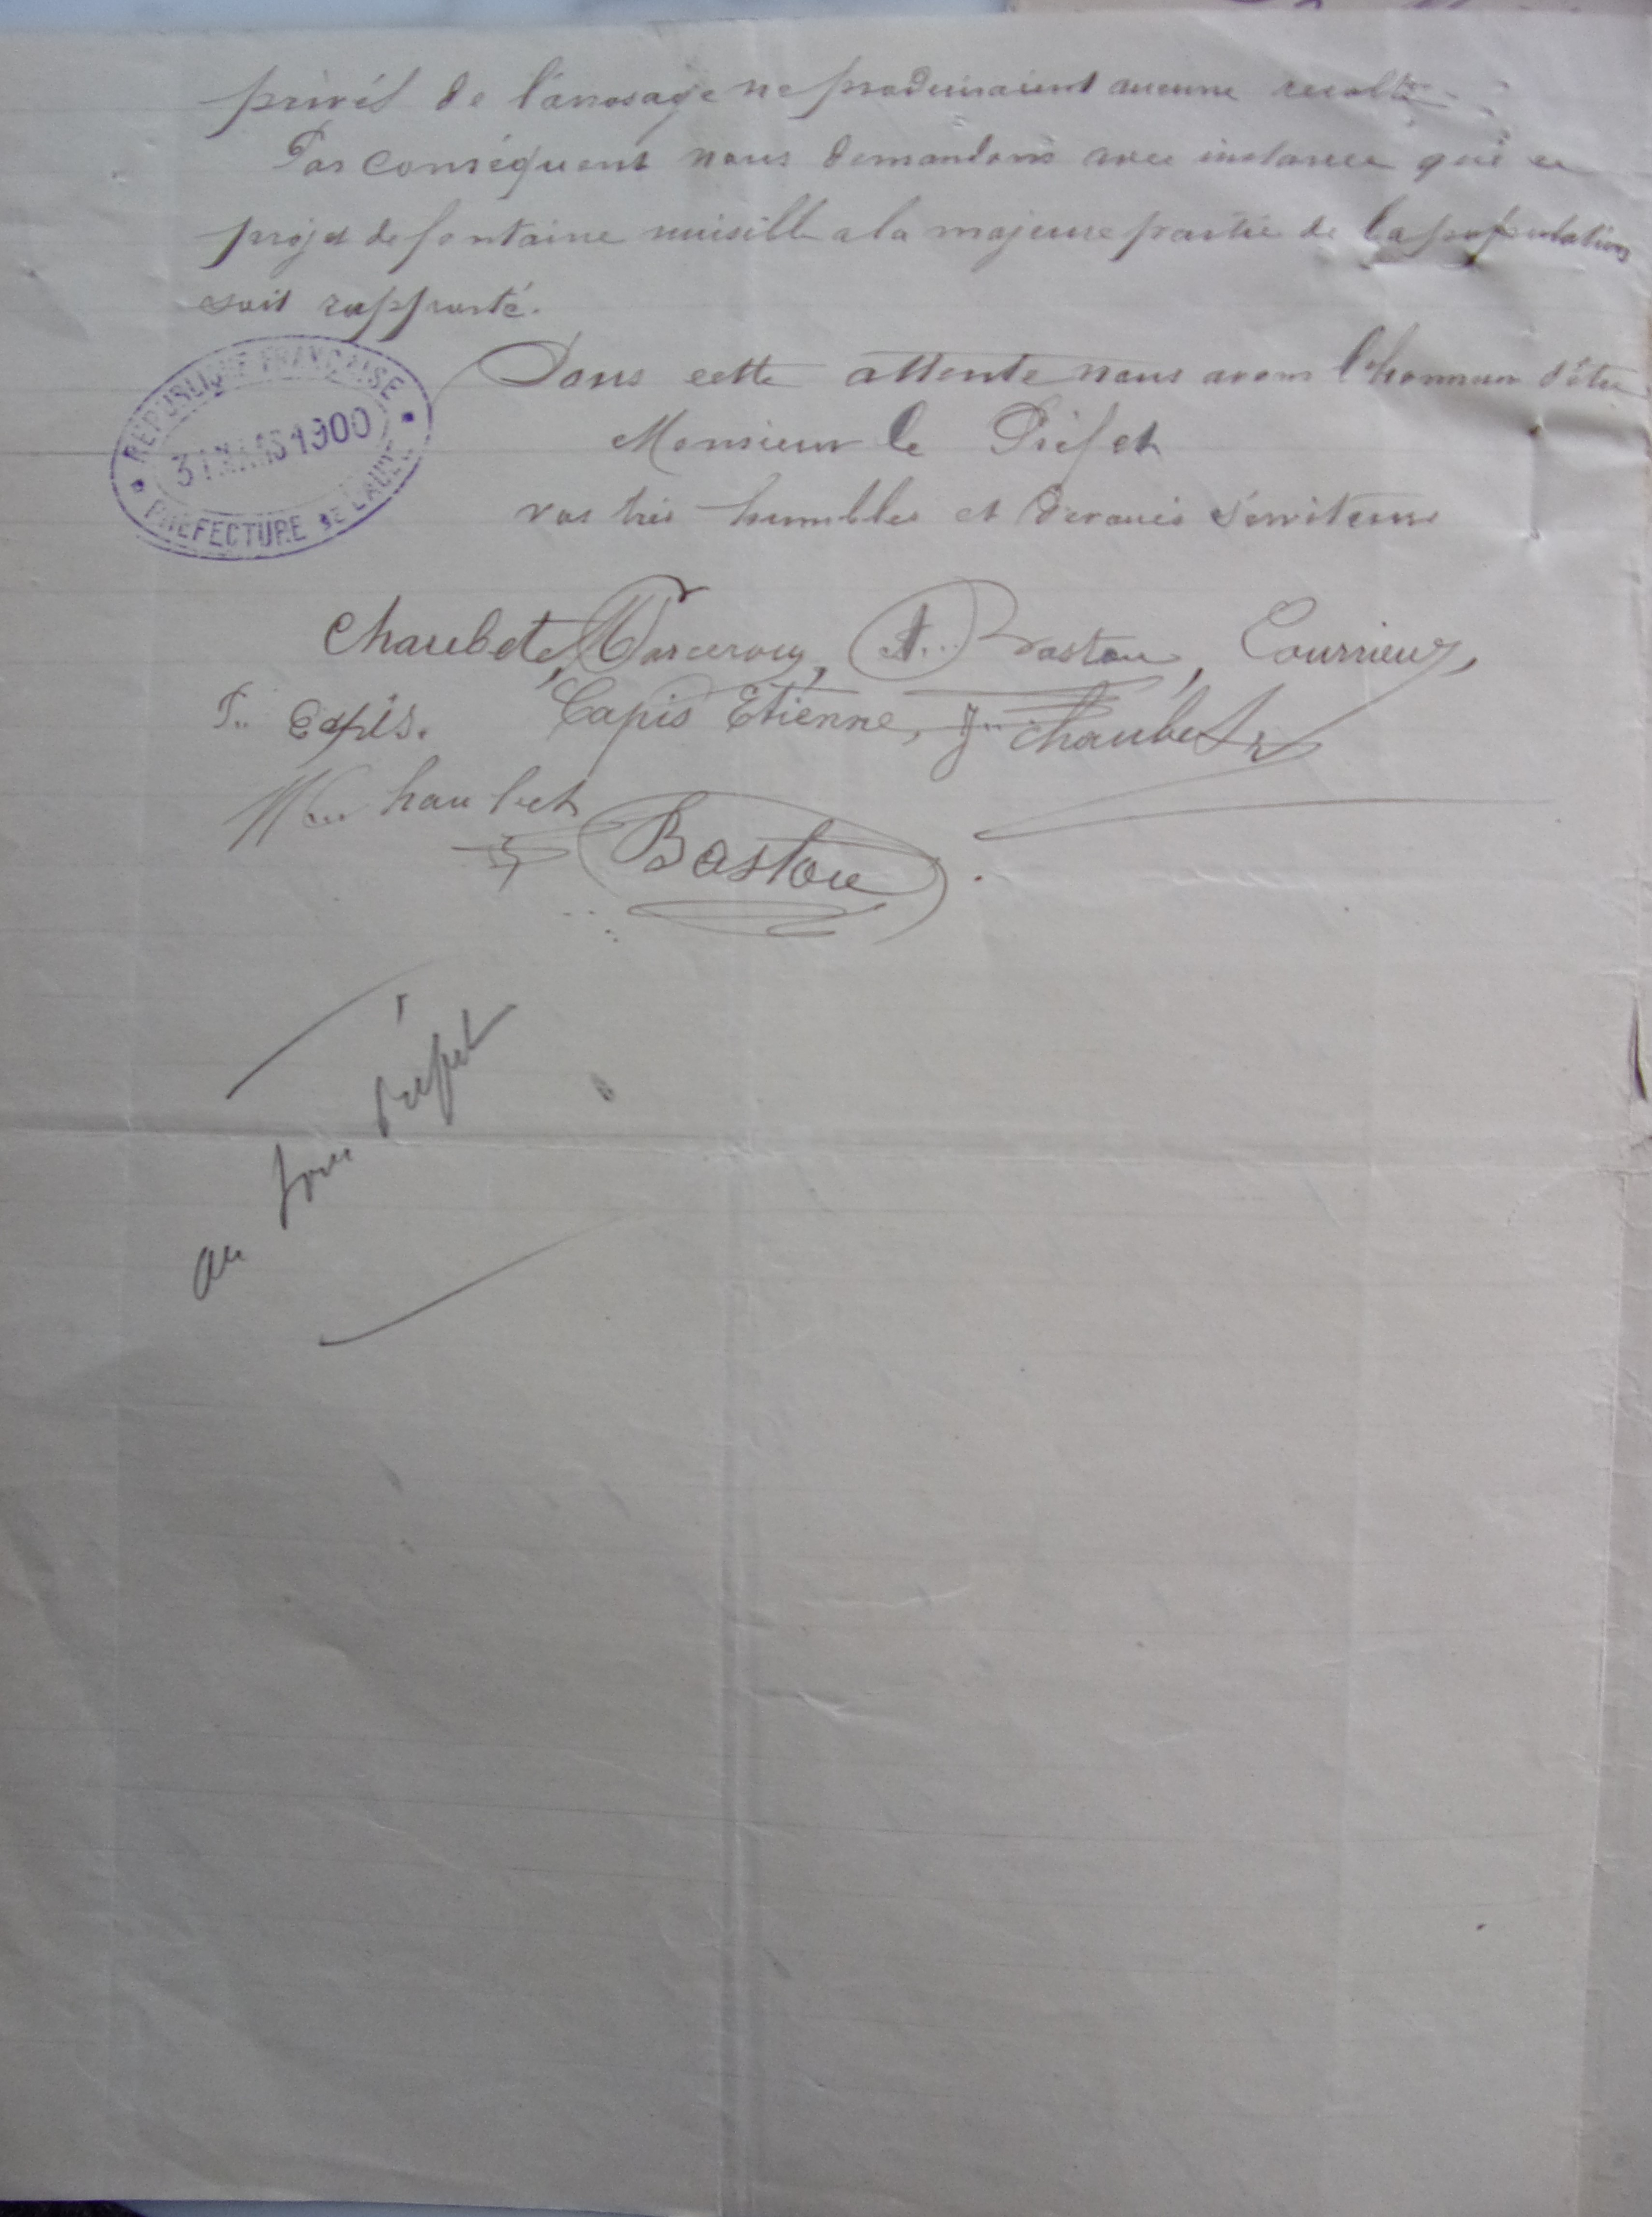 privés de l'arrosage ne produiraient aucune recolte
Par conséquent nous demandons avec instance que ce
projet de fontaine nuisible a la majeure partie de la population
soit rapporté.
Dans cette attente nous avons l'honneur d'être
Monsieur le Préfet
vos très humbles et dévoués serviteurs
RÉPUBLIQUE FRANÇAISE
31 MARS 1900
PRÉFECTURE DE L'AUDE
Chaubet, Marcerou, A. Bastou, Courrieu,
Capis. Capis Etienne, Jn Chaubet
Chaubet
Bastou
au sous Préfet